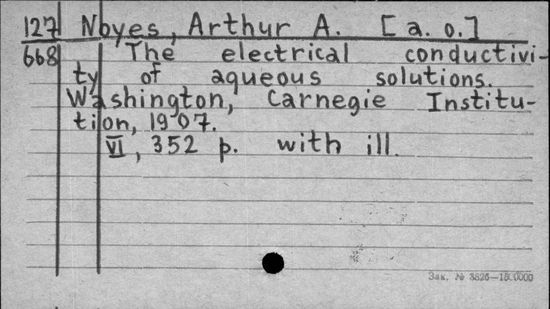 127 Noyes, Arthur A. [a. o.]
668 The electrical conductivi-
ty of aqueous solutions.
Washington, Carnegie Institu-
tion, 1907.
VI, 352 p. with ill.
Зак. № 3626—150000